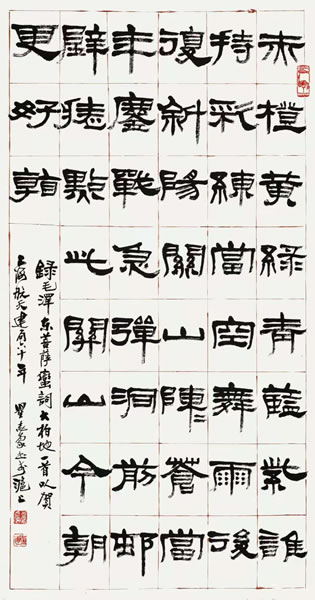 赤橙黃綠青藍紫誰
持彩練當空舞雨後
復斜陽關山陣〻蒼當
年鏖戰急彈洞前邨
壁裝點此關山今朝
更好看
錄毛澤東菩薩蠻詞大柏地一首以賀
上海航天建十年 瞿志豪滬上